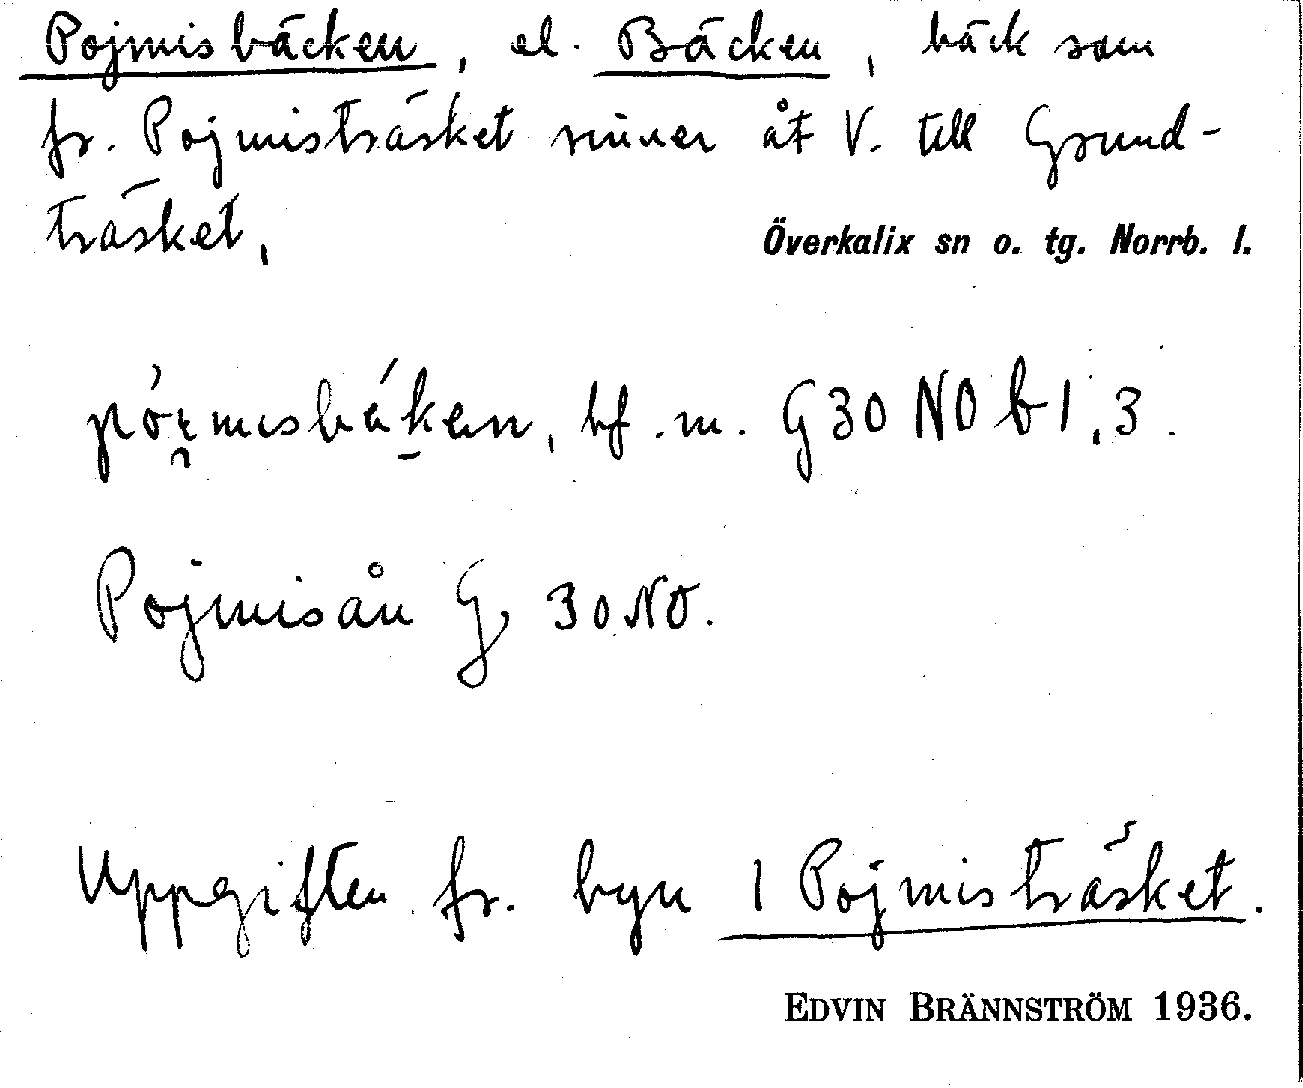 Pojmisbäcken, el. Bäcken, bäck som
fr. Pojmisträsket rinner åt V. till Grund-
träsket,
Överkalix sn o. tg. Norrb. l.
bf. m. G 30 NO b 1, 3.
Pojmisån G, 30 NO.
Uppgiften fr. byn 1 Pojmisträsket.
EDVIN BRÄNNSTRÖM 1936.